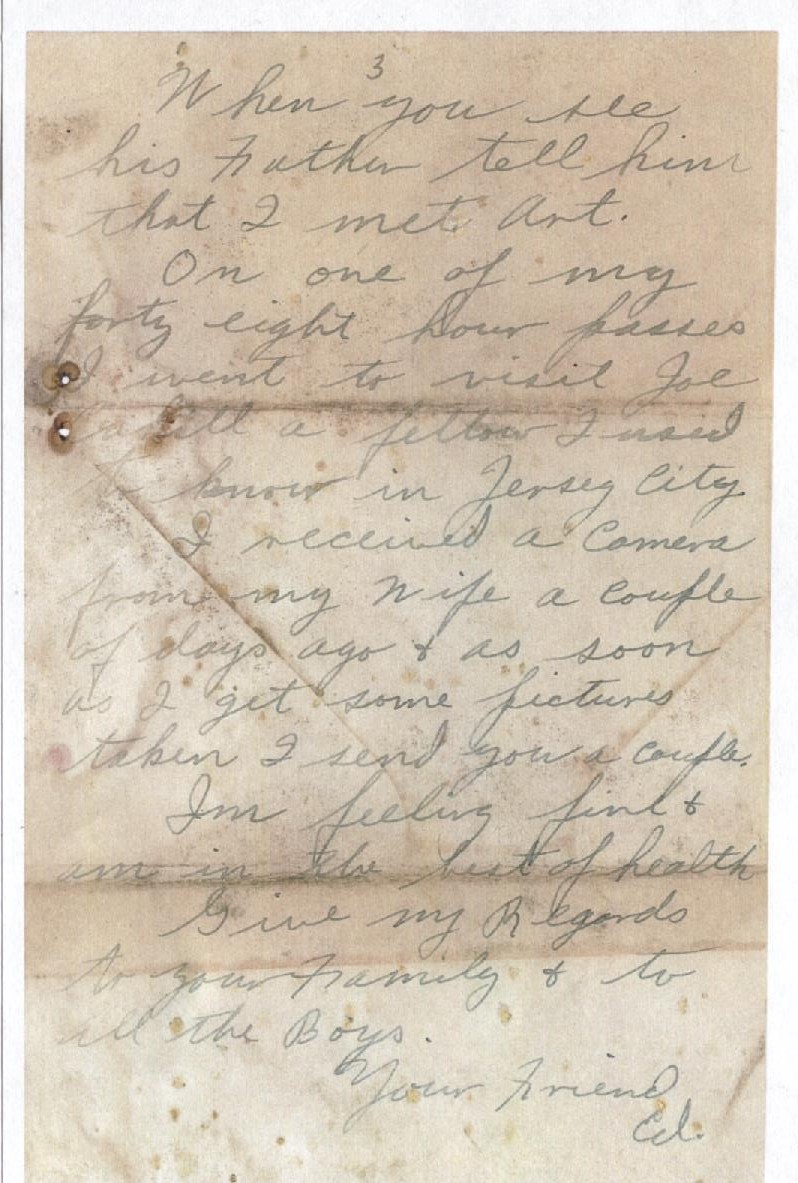 3
When you see
his Father tell him
that I met Art.
On one of my
forty eight hour passes
I went to visit Joe
a fellow I used
to know in Jersey City
I received a Camera
from my Wife a couple
of days ago & as soon
as I get some pictures
taken I send you a couple.
Im feeling fine &
am in the best of health
Give my Regards
to your Family & to
all the Boys.
Your Friend
Ed.